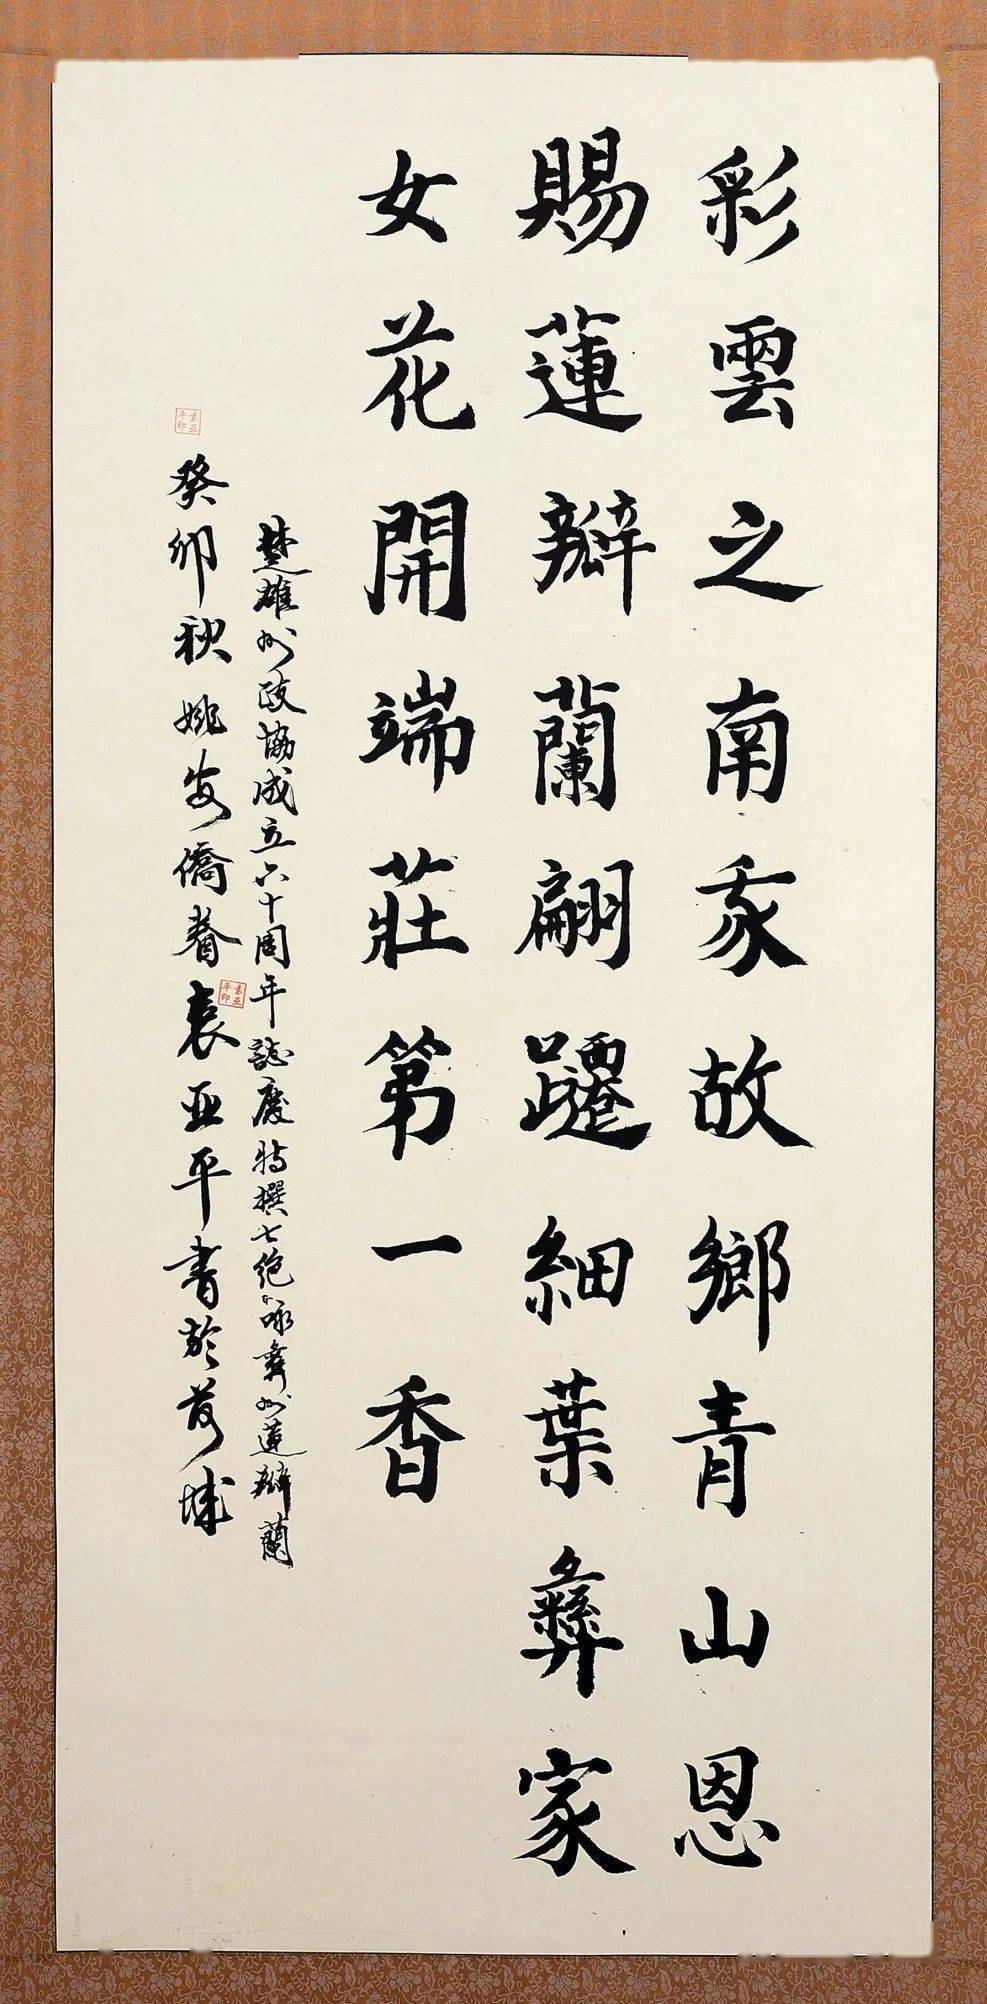 彩雲之南我故鄉青山恩
賜蓮瓣蘭翩躚細葉彝家
女花開端莊第一香
楚雄州政協成立六十周年誌慶特撰七絕詠彝州蓮瓣蘭
袁亞平印
癸卯秋姚安僑眷袁亞平書於荷城
袁亞平印